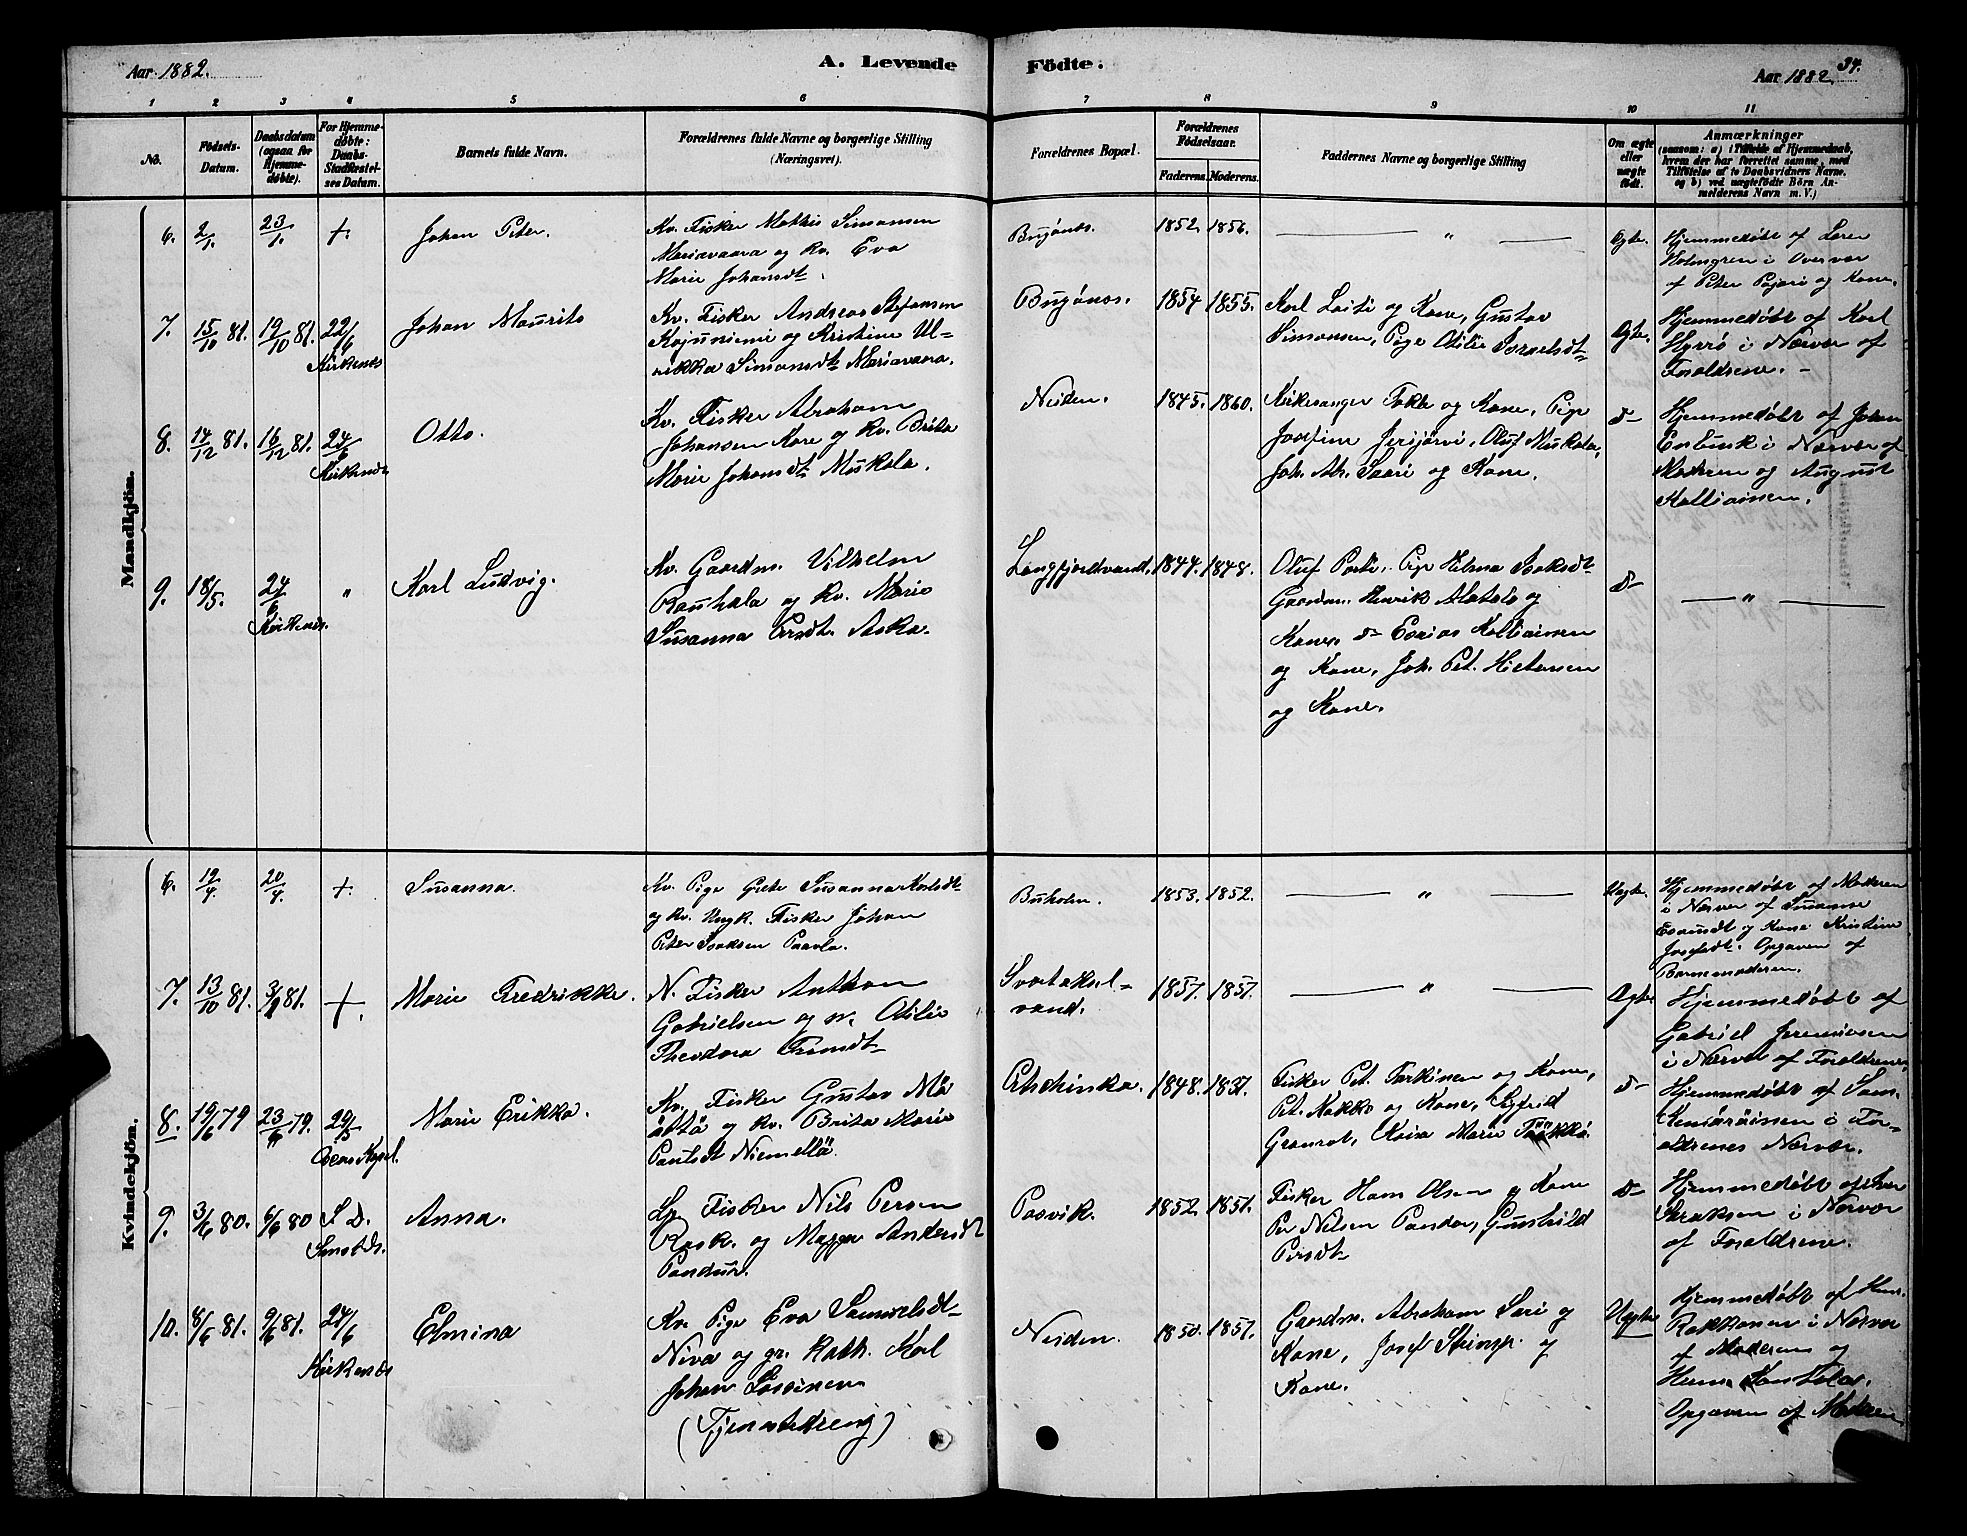 Aar 1882.
A. Levende Födte.
Aar 1882.
34.
1 2 3 4 5 6 7 8 9 10 11
No.
Födsels-
Datum.
Daabsdatum
(ogsaa for
Hjemme-
døbte).
For Hjemme-
døbte:
Daabs-
Stadfæstel-
ses Datum.
Barnets fulde Navn.
Forældrenes fulde Navne og borgerlige Stilling
(Næringsvei).
Forældrenes Bopæl.
Forældrenes
Födselsaar.
Faderens. Moderens.
Faddernes Navne og borgerlige Stilling
Om ægte
eller
uægte
født.
Anmærkninger
(saasom: a) i Tilfælde af Hjemmedaab,
hvem der har forrettet samme, med
Tilföielse af to Daabsvidners Navne,
og b) ved uægtefödte Börn An-
melderens Navn m. V.)
Mandkjön.
6. 2/1. 23/1. +. Johan Peter.
Kv. Fisker Mathis Simonsen
Mariavaara og Kv. Eva
Marie Johansdt.
Bugönes. 1852. 1856. — " — Ægte.
Hjemmedöbt af Lærer
Holmgren i Overvær
af Peter Pajari og Kone.
7. 15/10 81. 19/10 81. 22/6 Kirkenes Johan Maurits
Kv. Fisker Andreas Stefansen
Kojuniemi og Kristine Ul-
rikka Simonsdt Mariavaara.
Bugönes. 1854 1855.
Karl Laiti og Kone, Gustav
Simonsen, Pige Otilie Israelsdt
Ægte.
Hjemmedöbt af Karl
Hyrrö i Nærvær af
Foraldrene. -
8. 14/12 81. 16/12 81. 24/6 Kirkenes Otto.
Kv. Fisker Abraham
Johansen Kare og Kv. Brita
Marie Johansdt Muskala.
Neiden. 1845. 1860.
Kirkesanger Fokte og Kone, Pige
Josefine Jerijärvi, Oluf Muskala,
Joh. Ab. Saari og Kone.
d-
Hjemmedöbt af Johan
Enbusk i Nærvær af
Moderen og August
Koltiainen.
9. 18/5. 24/6 Kirkenes. " Karl Ludvig.
Kv. Gaardm. Vilhelm
Rauhala og Kv. Marie
Susanna Persdt. Aska.
Langfjordvand. 1844. 1848.
Oluf Porti. Pige Helma Isaksdt
Gaardm. Henrik Alatalo og
Kone, d- Esaias Koltiainen
og Kone, Joh. Pet. Hietanen
og Kone.
d- — " —
Kvindekjön.
6. 19/4. 20/4. +. Susanna.
Kv. Pige Grete Susanna Karlsdt
og Kv. Ungk. Fisker Johan
Peter Isaksen Paavla.
Buholm. 1853. 1852. — " — Uægte.
Hjemmedöbt af Moderen
i Nærvær af Susanne
Esaiasdt og Kone Kristine
Josefsdt. Opgaven af
Barnemoderen.
7. 13/10 81. 81. +. Marie Fredrikke.
N. Fisker Anthon
Gabrielsen og n. Otilie
Theodora Trondt
Svartaksel-
vand.
1857. 1857. — " — Ægte
Hjemmedöbt af
Gabriel Jeremiasen
i Nærvær af Foraldrene.
8. 19/6 79 23/6 79. 29/5 Oscars Kapel. Marie Erikka.
Kv. Fisker Gustav Mä
ättä og kv. Brita Marie
Paulsdt Niemellä.
Petschinka. 1848. 1837.
Fisker Pet. Tarkinen og Kone,
Pet. Kokko og Kone, Sigfrid
Granrot, Kaisa Marie
d-
Hjemmedöbt af Sam.
Kemäräinen i For-
ældrenes Nærvær.
9. 3/6 80. 6/6 80 S. D. Anna.
Lp. Fisker Nils Persen
Rask. og Magga Andersdt
Pandur.
Pasvik. 1852. 1851.
Fisker Hans Olsen og Kone
Per Nilsen Pandur, Gunhild
Persdt
d-
Hjemmedöbt af Iver
Isaksen i Nærvær
af Foraldrene.
10. 8/6 81. 9/6 81. 24/6 Kirkenes Elmina
Kv. Pige Eva Samuelsdt
Niva og gr. Kath. Karl
Johan Lassinen
(Tjenestedreng)
Neiden. 1850. 1857.
Gaardm. Abraham Sari og
Kone, Josef Stümp og
Kone.
Uægte
Hjemmedöbt af Hen.
Rakkonen i Nærvær
af Moderen og
Hen.
Opgaven af Moderen